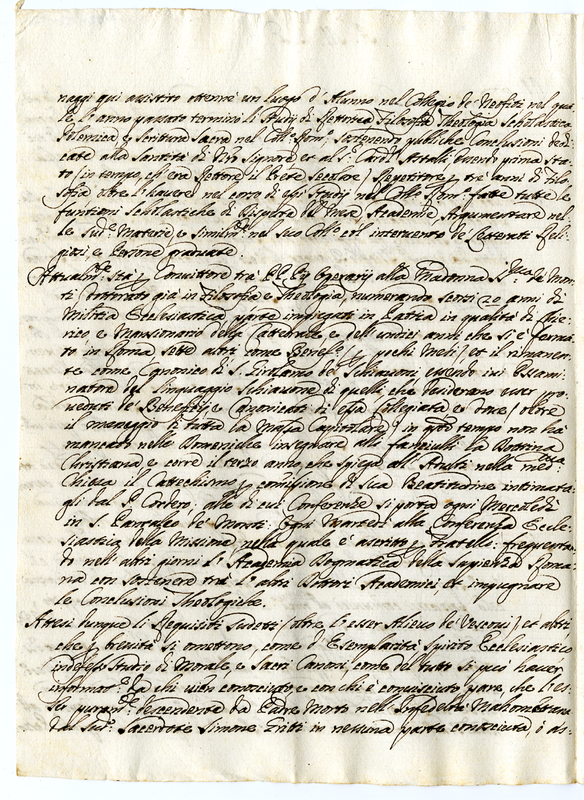 naggi qui assistito ottenne un luogo d'Alunno nel Collegio de' Neofiti nel qua
le l'anno passato terminò li Studj di Rettorica Filosofia Theologia Scholastica
Polemica, e Scrittura Sacra nel Coll.º Rom.º sostenendo publiche Conclusioni dedi
cate alla Santità di Nro Signore et al S.r Card.l
to (in tempo, ch'era Rettore il Prete Secolare) Repetitore p tre anni di Filo
sofia oltre l'havere nel corso di essi Studij nel Coll.º Rom.º fatte tutte le
funtioni Scholastiche di Dispute del Mese, Academie Argumentare nel
le Sud.e Materie, e Similm.te nel suo Coll.º coll'intervento de' Letterati Reli
giosi, e Persone graduate.
Attualm.te Stà p Convittore tra PP. Pij Operarij alla Madonna SS.ma de Mon
ti Dottorato già in Filosofia e Theologia, numerando sensi 20 anni di
Militia Ecclesiastica, parte impiegati in Patria in qualità di Chie
rico e Mansionario della Cattedrale, e dell'undici anni che si è ferma
to in Roma sette altri come Benef.to p pochi Mesi, et il rimanen
te come Canonico di S. Girolamo de' Schiavoni essendo ivi Essami
natore del linguaggio Schiavone di quelli, che desiderano esser pro
veduti de' Beneficij, e Canonicati di essa Collegiata et ove (oltre
il maneggio di tutta la Massa Capitolare) in q.to tempo non hà
mancato nelle Domeniche insegnare alli fanciulli la Dottrina
Christiana, e corre il terzo anno, che spiega all'Adulti nella med.ma
Chiesa il Catechismo p comissione di Sua Beatitudine intimata
gli dal P. Cordero, alle di cui Conferenze si porta ogni Mercoledì
in S. Pancrazio de' Monti. Ogni Martedì alla Conferenza Eccle
siastica della Missione, nella quale è ascritto p Fratello: frequentan
do nell'altri giorni l'Academia Dogmatica della Sapienza Roma
na con sostenere trà l'altri Dottori Academici, et impugnare
le Conclusioni Theologiche.
Attesi dunque li Requisiti sudetti (oltre l'esser Allievo de' Vescovi) et altri,
che p brevità si omettono, come d'Esemplarità Spirito Ecclesiastico
indefesso Studio di Morale e Sacri Canoni, come del tutto si può haver
informat.e da chi vien conosciuto, e con chi è conosciuto pare, che l'es
ser puram.te descendente da Padre Morto nell'Infedeltà Mahomettana
dal sud.º Sacerdote Simone Gritti in nessuna parte conosciuta, ò as-